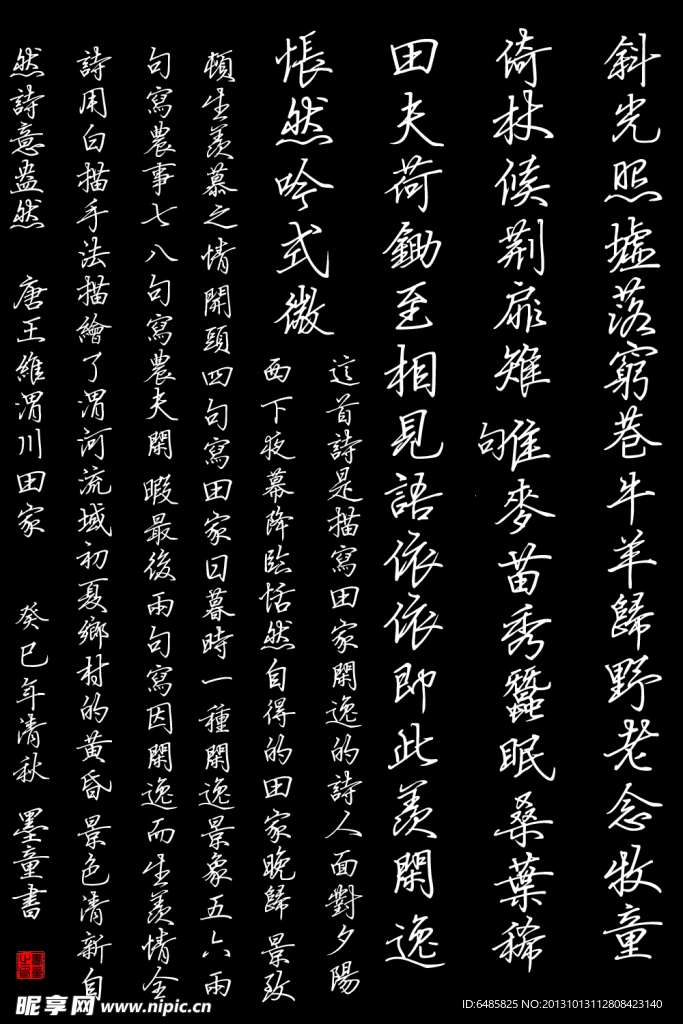 斜光照墟落窮巷牛羊歸野老念牧童
倚杖候荆扉雉雊麥苗秀蠶眠桑葉稀
田夫荷鋤至相見語依依即此羨閑逸
悵然吟式微
這首詩是描寫田家閑逸的詩人面對夕陽
西下夜幕降臨恬然自得的田家晚歸景致
頓生羨慕之情開頭四句寫田家日暮時一種閑逸景象五六兩
句寫農事七八句寫農夫閑暇最後兩句寫因閑逸而生羨情全
詩用白描手法描繪了渭河流域初夏鄉村的黄昏景色清新自
然詩意盎然 唐王維渭川田家 癸巳年清秋 墨童書
昵享网 www.nipic.cn
ID:6485825 NO:20131013112808423140